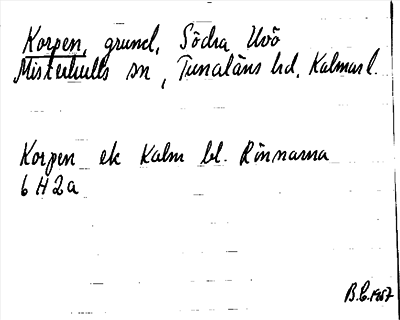 Korpen, grund, Södra Uvö
Misterhults sn, Tunaläns hd, Kalmar l.
Korpen ek Kalm bl. Rönnarna
6 H 2a
B.E. 1957